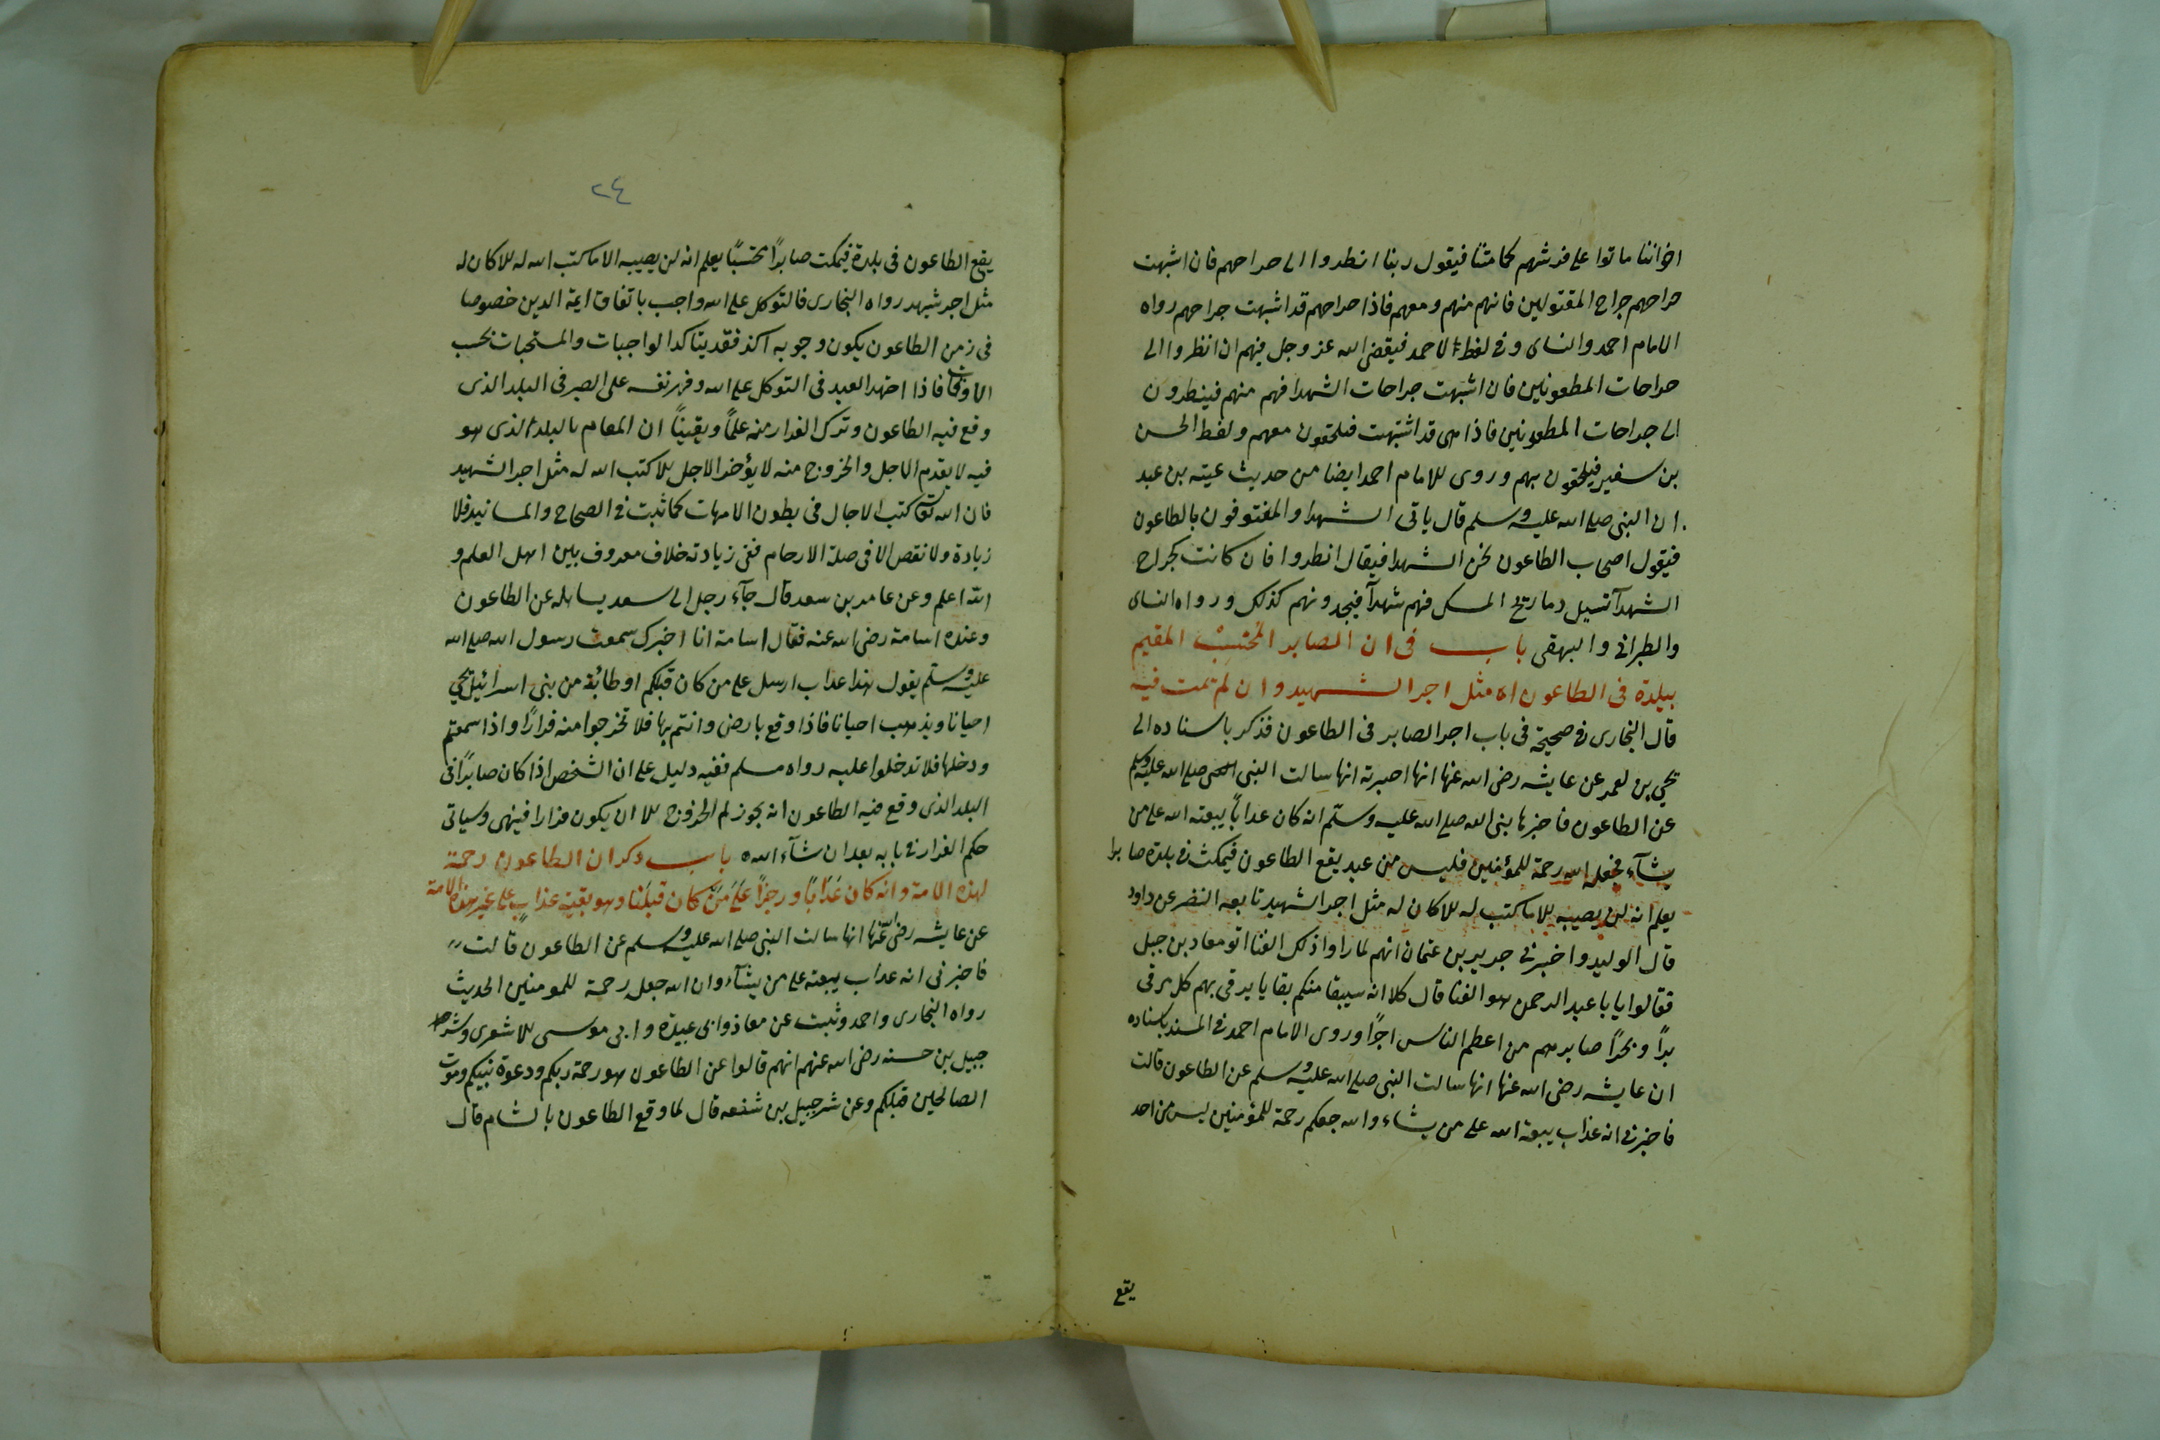 اخواننا ماتوا على فرشهم كما متنا فيقول ربنا انظروا الى جراحهم فان اشبهت
جراحهم جراح المقتولين فانهم منهم ومعهم فاذا جراحهم قد اشبهت جراحهم رواه
الامام احمد والنساى وفى لفظ الاحمد فيقضى الله عز وجل فيهم ان انظروا الى
جراحات المطعونين فان اشبهت جراحات الشهدا فهم منهم فينظرون
الى جراحات المطعونين فاذا هى قد اشبهت فيلحقون معهم ولفظ الحسن
بن سفير فيلحقون بهم وروى للامام احمد ايضا من حديث عيته بن عبد
ان النبى صلى الله عليه وسلم قال ياتى الشهدا والمفتوفون بالطاعون
فيقول اصحاب الطاعون نحن الشهدا فيقال انظروا فان كانت كجراح
الشهدآ تسيل دما ريح المسك فهم شهدآ فيجدونهم كذلك ورواه النساى
والطبرانى والبهقى باب فى ان الصابر المحتسب المقيم
ببلدة فى الطاعون له مثل اجر الشهيد وان لم تمت فيه
قال البخارى فى صحيحه فى باب اجر الصابر فى الطاعون فذكر باسناده الى
يحيى بن يعمر عن عايشه رضى الله عنها انها اخبرته انها سالت النبى صلى الله عليه وسلم
عن الطاعون فاخبرها نبى الله صلى الله عليه وسلم انه كان عذاباً يبعثه الله على من
يشآء فجعله الله رحمة للمؤمنين فليس من عبد يقع الطاعون فيمكث فى بلدة صابرا
يعلم انه لن يصيبه الا ما كتب له الا كان له مثل اجر الشهيد تابعه النضر عن داود
قال الوليد واخبرنى جرير بن عثمان انهم لما راوا ذلك الفنا اتو معاذ بن جبل
فقالوا يابا عبد الرحمن هو الفنا قال كلا انه سيبقا منكم بقايا يرقى بهم كل مرقى
براً وبحراً صابرهم من اعظم الناس اجراً وروى الامام احمد فى المسند باسناده
ان عايشه رضى الله عنها انها سالت النبى صلى الله عليه وسلم عن الطاعون قالت
فاخبرنى انه عذاب يبعثه الله على من يشاء والله جعلكم رحمة للمؤمنين ليس من احد
يقع
٢٤
يقع الطاعون فى بلدة فيمكث صابراً محتسباً يعلم انه لن يصيبه الا ما كتب الله له الا كان له
مثل اجر شهيد رواه البخارى فالتوكل على الله واجب باتفاق ايمة الدين خصوصا
فى زمن الطاعون يكون وجوبه اكد فقد يتاكد الواجبات والمستحبات بحسب
الاوقات فاذا اجتهد العبد فى التوكل على الله وقهر نفسه على الصبر فى البلد الذى
وقع فيه الطاعون وترك الفرار منه علماً ويقيناً ان المقام بالبلد الذى هو
فيه لا يقدم الاجل والخروج منه لا يؤخر الاجل الا كتب الله له مثل اجر الشهيد
فان الله تعالى كتب الاجال فى بطون الامهات كما ثبت فى الصحاح والمسانيد فلا
زيادة ولا نقص الا فى صلة الارحام ففى زيادته خلاف معروف بين اهل العلم و
الله اعلم وعن عامر بن سعد قال جآء رجل الى سعد يسايله عن الطاعون
وعنده اسامة رضى الله عنه فقال اسامة انا اخبرك سمعت رسول الله صلى الله
عليه وسلم يقول هذا عذاب ارسل على من كان قبلكم او طائفة من بنى اسرائيل يجى
احيانا ويذهب احيانا فاذا وقع بارض وانتم بها فلا تخرجوا منه فراراً واذا سمعتم
ودخلها فلا تدخلوا عليه رواه مسلم ففيه دليل على ان الشخص اذا كان صابراً فى
البلد الذى وقع فيه الطاعون انه يجوز لم الخروج الا ان يكون فرارا فينهى وسياتى
حكم الفرار فى بابه بعد ان شآء الله باب ذكر ان الطاعون رحمة
لهذه الامة وانه كان عذاباً ورجزاً على من كان قبلنا وهو بقية عذاب على غير هذه الامة
عن عايشه رضى الله عنها انها سالت النبى صلى الله عليه وسلم عن الطاعون قالت
فاخبرنى انه عذاب يبعثه على من يشآء وان الله جعله رحمة للمومنين الحديث
رواه البخارى واحمد وثبت عن معاذ وابى عبيدة وابى موسى الاشعرى وشر
حبيل بن حسنه رضى الله عنهم انهم قالوا عن الطاعون هو رحمة ربكم ودعوة نبيكم وموت
الصالحين قبلكم وعن شرحبيل بن شفعه قال لما وقع الطاعون بالشام قال